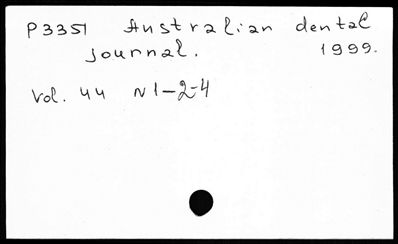 P3351 Australian dental
journal. 1999.
Vol. 44 N1-2-4